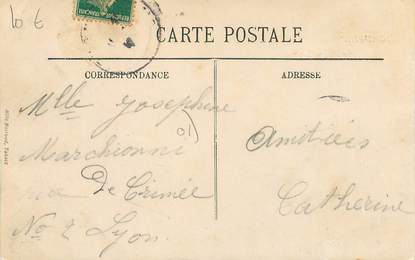 10 €
CARTE POSTALE
CORRESPONDANCE
ADRESSE
Mlle Josephine
Marchionni
rue De Crimée
No 2 Lyon
Amitiés
Catherine